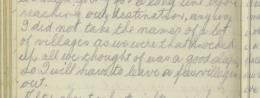 always going so along time before
reaching our destination, anyway
I did not take the names of a lot
of villages as we were that knocked
up all we thought of was a good sleep
so I will have to leave a few villages
out.